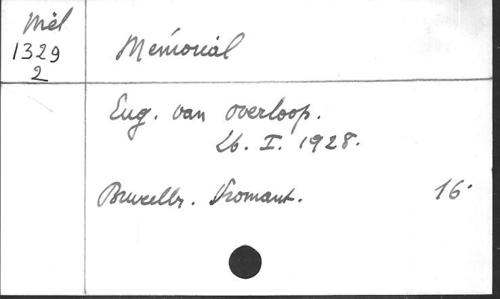 Mél
1329
2
Mémorial
Eug. van Overloop.
26. I. 1928.
Bruxelles. Vromant. 16°